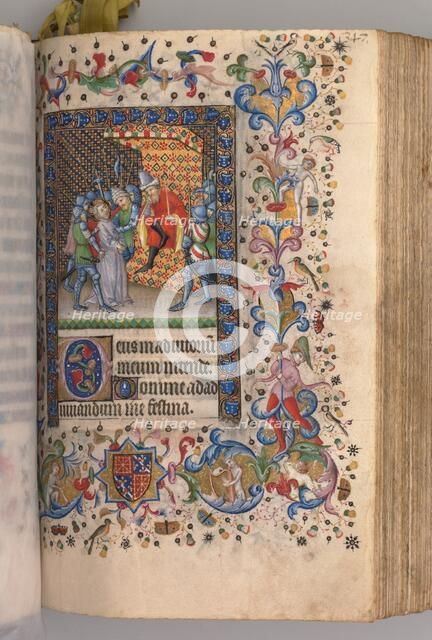 347
Deus in adiutorium
meum intende.
Domine ad ad
iuuandum me festina.
Heritage Heritage Heritage
Heritage Heritage Heritage
Heritage Heritage Heritage